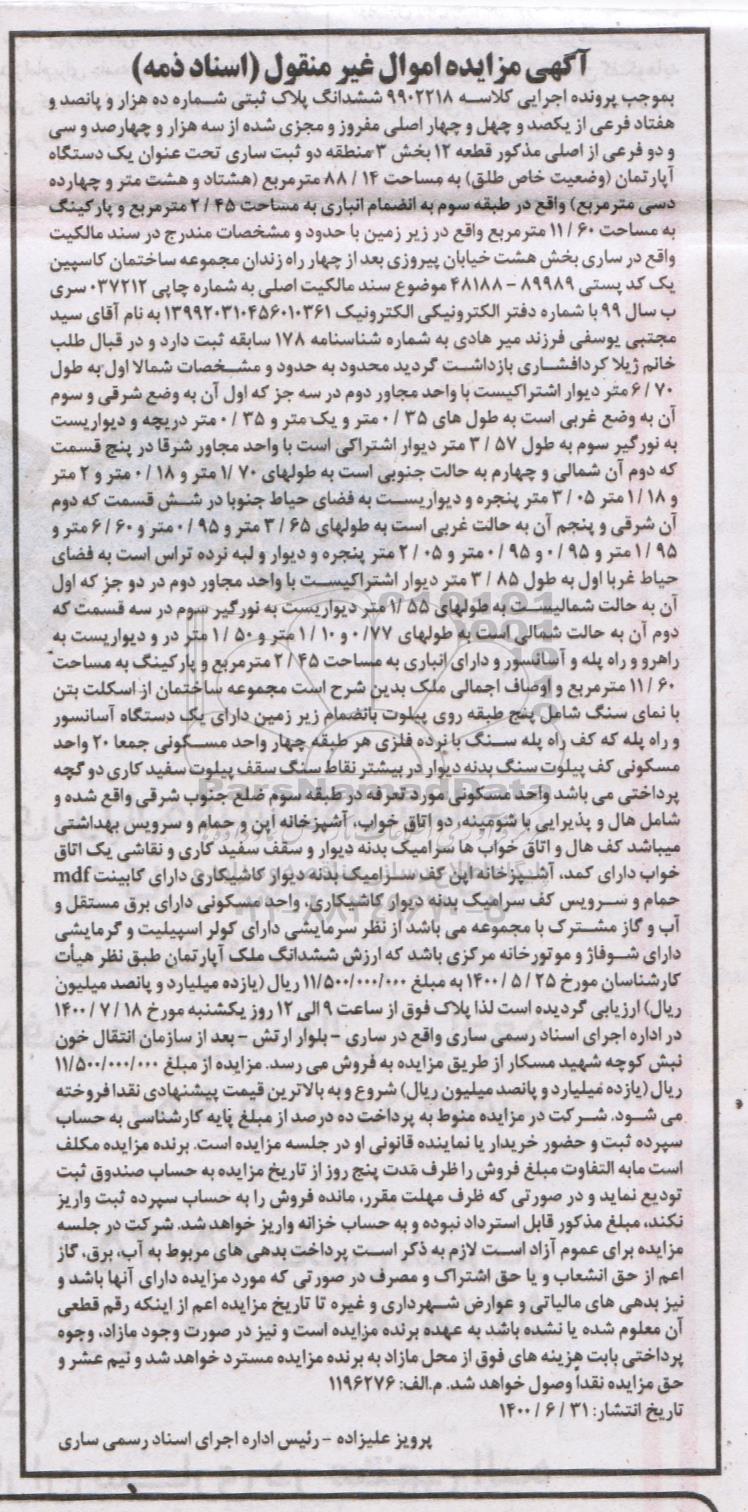 آگهی مزایده اموال غیر منقول (اسناد ذمه)
بموجب پرونده اجرایی کلاسه ۹۹۰۲۲۱۸ ششدانگ پلاک ثبتی شماره ده هزار و پانصد و
هفتاد فرعی از یکصد و چهل و چهار اصلی مفروز و مجزی شده از سه هزار و چهارصد و سی
و دو فرعی از اصلی مذکور قطعه ۱۲ بخش ۳ منطقه دو ثبت ساری تحت عنوان یک دستگاه
آپارتمان (وضعیت خاص طلق) به مساحت ۱۴ / ۸۸ مترمربع (هشتاد و هشت متر و چهارده
دسی مترمربع) واقع در طبقه سوم به انضمام انباری به مساحت ۴۵ / ۲ مترمربع و پارکینگ
به مساحت ۶۰ / ۱۱ مترمربع واقع در زیر زمین با حدود و مشخصات مندرج در سند مالکیت
واقع در ساری بخش هشت خیابان پیروزی بعد از چهار راه زندان مجموعه ساختمان کاسپین
یک کد پستی ۸۹۹۸۹ – ۴۸۱۸۸ موضوع سند مالکیت اصلی به شماره چاپی ۰۳۷۲۱۲ سری
ب سال ۹۹ با شماره دفتر الکترونیکی الکترونیک ۱۳۹۹۲۰۳۱۰۴۵۶۰۱۰۳۶۱ به نام آقای سید
مجتبی یوسفی فرزند میر هادی به شماره شناسنامه ۱۷۸ سابقه ثبت دارد و در قبال طلب
خانم ژیلا کردافشاری بازداشت گردید محدود به حدود و مشخصات شمالا اول به طول
۷۰ / ۶ متر دیوار اشتراکیست با واحد مجاور دوم در سه جز که اول آن به وضع شرقی و سوم
آن به وضع غربی است به طول های ۳۵ / ۰ متر و یک متر و ۳۵ / ۰ متر دریچه و دیواریست
به نورگیر سوم به طول ۵۷ / ۳ متر دیوار اشتراکی است با واحد مجاور شرقا در پنج قسمت
که دوم آن شمالی و چهارم به حالت جنوبی است به طولهای ۷۰ /۱ متر و ۱۸ / ۰ متر و ۲ متر
و ۱۸ / ۱ متر ۰۵ / ۳ متر پنجره و دیواریست به فضای حیاط جنوبا در شش قسمت که دوم
آن شرقی و پنجم آن به حالت غربی است به طولهای ۶۵ / ۳ متر و ۹۵ / ۰ متر و ۶۰ / ۶ متر و
۹۵ / ۱ متر و ۹۵ / ۰ و ۹۵ / ۰ متر و ۰۵ / ۲ متر پنجره و دیوار و لبه نرده تراس است به فضای
حیاط غربا اول به طول ۸۵ / ۳ متر دیوار اشتراکیست با واحد مجاور دوم در دو جز که اول
آن به حالت شمالیست به طولهای ۵۵ /۱ متر دیواریست به نورگیر سوم در سه قسمت که
دوم آن به حالت شمالی است به طولهای ۷۷/ ۰ و ۱۰ / ۱ متر و ۵۰ / ۱ متر در و دیواریست به
راهرو و راه پله و آسانسور و دارای انباری به مساحت ۴۵ / ۲ مترمربع و پارکینگ به مساحت
۶۰ / ۱۱ مترمربع و اوصاف اجمالی ملک بدین شرح است مجموعه ساختمان از اسکلت بتن
با نمای سنگ شامل پنج طبقه روی پیلوت بانضمام زیر زمین دارای یک دستگاه آسانسور
و راه پله که کف راه پله سنگ با نرده فلزی هر طبقه چهار واحد مسکونی جمعا ۲۰ واحد
مسکونی کف پیلوت سنگ بدنه دیوار در بیشتر نقاط سنگ سقف پیلوت سفید کاری دو گچه
پرداختی می باشد واحد مسکونی مورد تعرفه در طبقه سوم ضلع جنوب شرقی واقع شده و
شامل هال و پذیرایی با شومینه، دو اتاق خواب، آشپزخانه اپن و حمام و سرویس بهداشتی
میباشد کف هال و اتاق خواب ها سرامیک بدنه دیوار و سقف سفید کاری و نقاشی یک اتاق
خواب دارای کمد، آشپزخانه اپن کف سرامیک بدنه دیوار کاشیکاری دارای کابینت mdf
حمام و سرویس کف سرامیک بدنه دیوار کاشیکاری، واحد مسکونی دارای برق مستقل و
آب و گاز مشترک با مجموعه می باشد از نظر سرمایشی دارای کولر اسپیلیت و گرمایشی
دارای شوفاژ و موتورخانه مرکزی باشد که ارزش ششدانگ ملک آپارتمان طبق نظر هیأت
کارشناسان مورخ ۲۵ / ۵ / ۱۴۰۰ به مبلغ ۱۱/۵۰۰/۰۰۰/۰۰۰ ریال (یازده میلیارد و پانصد میلیون
ریال) ارزیابی گردیده است لذا پلاک فوق از ساعت ۹ الی ۱۲ روز یکشنبه مورخ ۱۸ / ۷ / ۱۴۰۰
در اداره اجرای اسناد رسمی ساری واقع در ساری – بلوار ارتش – بعد از سازمان انتقال خون
نبش کوچه شهید مسکار از طریق مزایده به فروش می رسد. مزایده از مبلغ ۱۱/۵۰۰/۰۰۰/۰۰۰
ریال (یازده میلیارد و پانصد میلیون ریال) شروع و به بالاترین قیمت پیشنهادی نقدا فروخته
می شود. شرکت در مزایده منوط به پرداخت ده درصد از مبلغ پایه کارشناسی به حساب
سپرده ثبت و حضور خریدار یا نماینده قانونی او در جلسه مزایده است. برنده مزایده مکلف
است مابه التفاوت مبلغ فروش را ظرف مدت پنج روز از تاریخ مزایده به حساب صندوق ثبت
تودیع نماید و در صورتی که ظرف مهلت مقرر، مانده فروش را به حساب سپرده ثبت واریز
نکند، مبلغ مذکور قابل استرداد نبوده و به حساب خزانه واریز خواهد شد. شرکت در جلسه
مزایده برای عموم آزاد است لازم به ذکر است پرداخت بدهی های مربوط به آب، برق، گاز
اعم از حق انشعاب و یا حق اشتراک و مصرف در صورتی که مورد مزایده دارای آنها باشد و
نیز بدهی های مالیاتی و عوارض شهرداری و غیره تا تاریخ مزایده اعم از اینکه رقم قطعی
آن معلوم شده یا نشده باشد به عهده برنده مزایده است و نیز در صورت وجود مازاد، وجوه
پرداختی بابت هزینه های فوق از محل مازاد به برنده مزایده مسترد خواهد شد و نیم عشر و
حق مزایده نقداً وصول خواهد شد. م.الف: ۱۱۹۶۲۷۶
تاریخ انتشار: ۳۱ / ۶ / ۱۴۰۰
پرویز علیزاده – رئیس اداره اجرای اسناد رسمی ساری
ParsNamadData